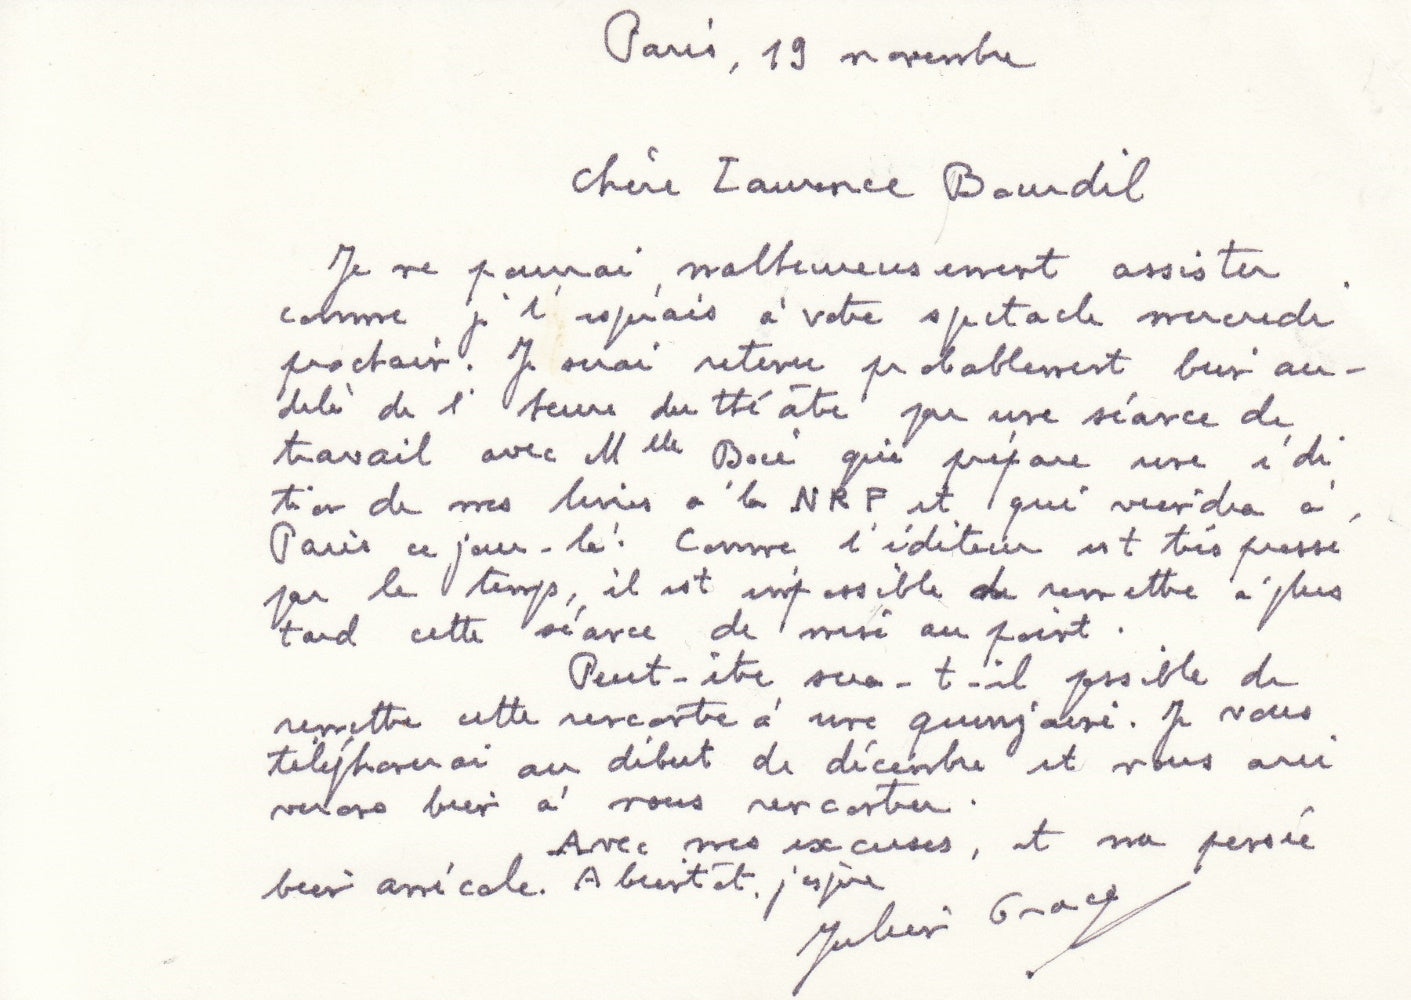 Paris, 19 novembre
Chère Laurence Bourdil
Je ne pourrai malheureusement assister
comme j'l'espérais à votre spectacle mercredi
prochain. Je serai retenu probablement bien au-
delà de l'heure du théâtre par une séance de
travail avec Mlle Boié qui prépare une édi
tion de mes livres à la NRF et qui viendra à
Paris ce jour-là. Comme l'éditeur est très pressé
par le temps, il est impossible de remettre à plus
tard cette séance de mise au point.
Peut-être sera-t-il possible de
remettre cette rencontre à une quinzaine. Je vous
téléphonerai au début de décembre et nous arri
verons bien à nous rencontrer.
Avec mes excuses, et ma pensée
bien amicale. A bientôt, j'espère
Julien Gracq